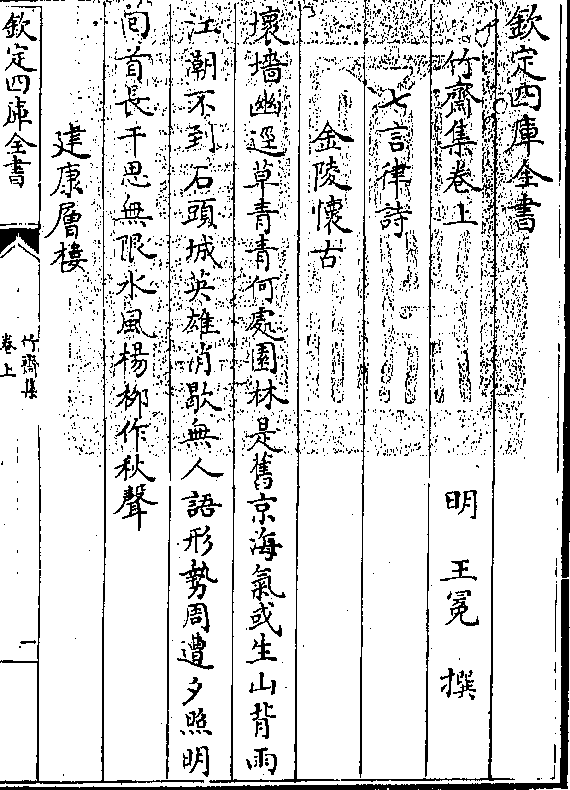 欽定四庫全書
竹齋集卷上
明 王冕 撰
七言律詩
金陵懷古
壞墻幽逕草青青何處園林是舊京海氣或生山背雨
江潮不到石頭城英雄消歇無人語形勢周遭夕照明
回首長干思無限水風楊柳作秋聲
建康層樓
欽定四庫全書
竹齋集
卷上
一